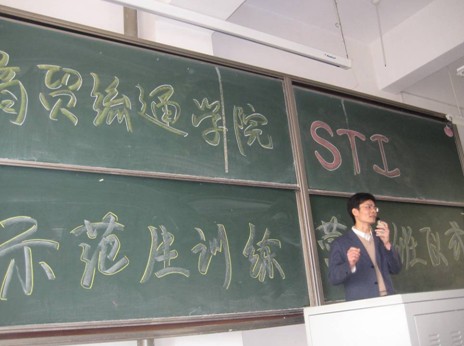 商贸流通学院
STI
示范生训练营